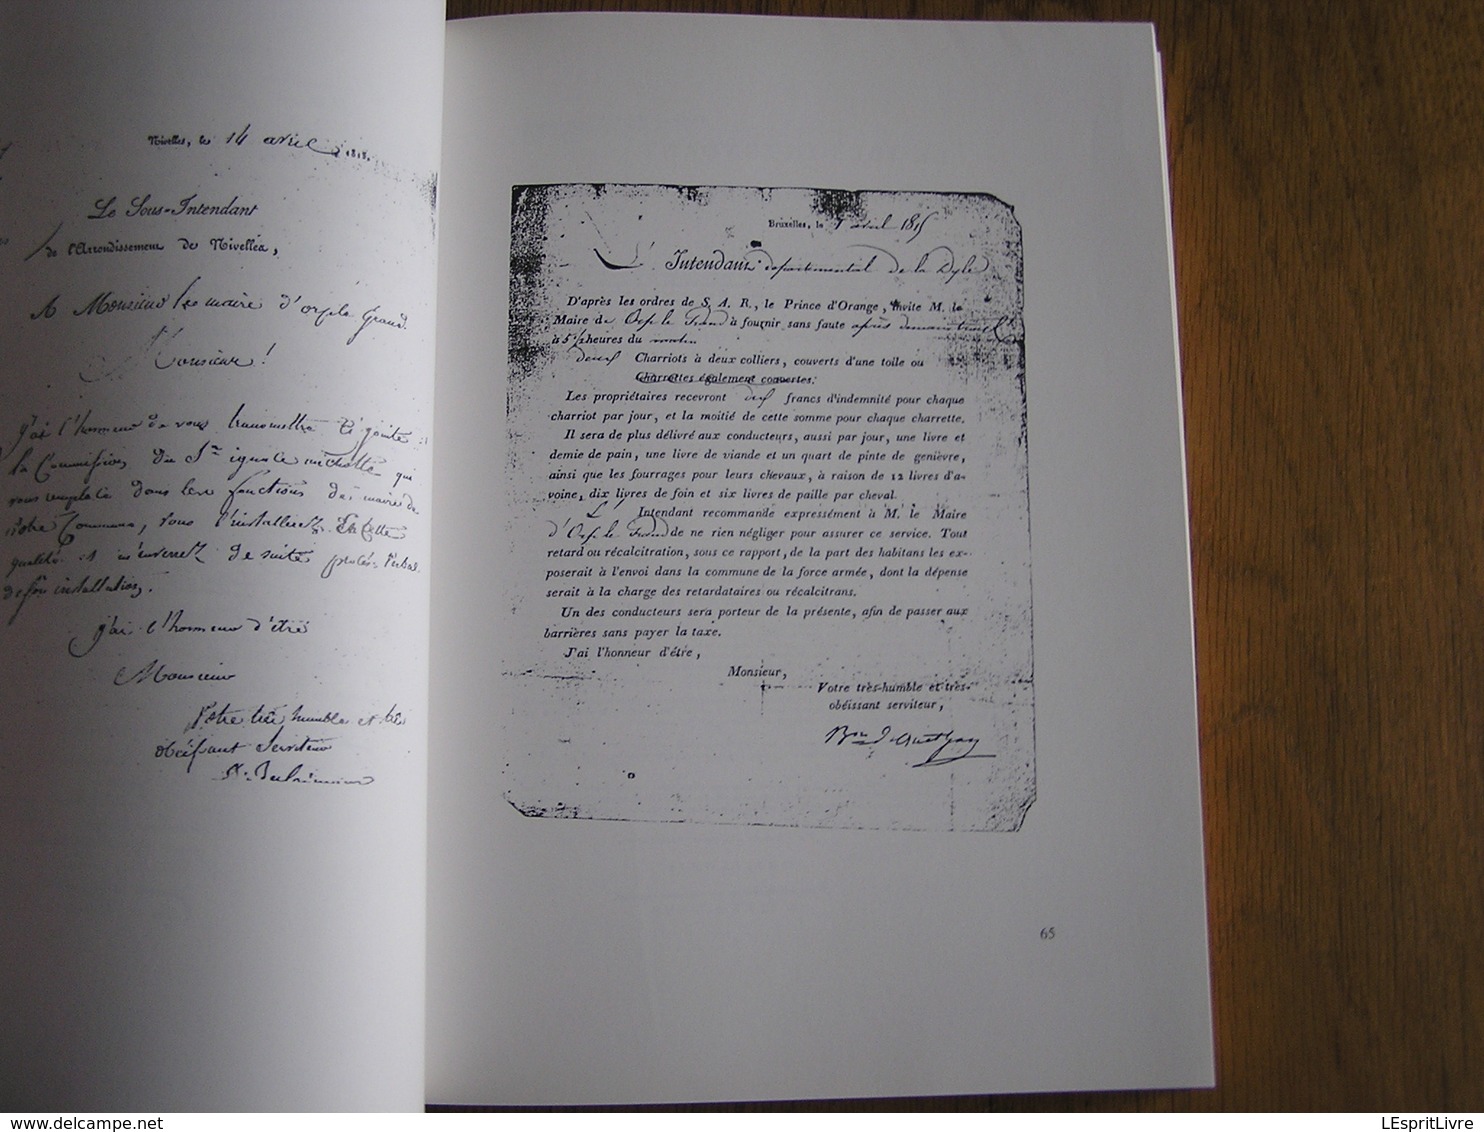 Nivelles, le 14 avril 1815.
Le Sous-Intendant
de l'Arrondissement de Nivelles,
A Monsieur le maire d'orp le Grand.
Monsieur !
J'ai l'honneur de vous transmettre ci jointe
la Commission du Sr ignace michotte qui
vous remplace dans les fonctions de maire de
votre Commune, vous l'installerez En cette
qualité et m'enverrez de suite procès-verbal
de son installation.
j'ai l'honneur d'être
Monsieur
Votre très humble et très
obéissant Serviteur
Bruxelles, le avril 1815
L' Intendant départemental de la Dyle
D'après les ordres de S. A. R., le Prince d'Orange, invite M. le
Maire de Orp le Grand à fournir sans faute après demain
à 5 1/2 heures du matin
deux Charriots à deux colliers, couverts d'une toile ou
Charrettes également couvertes.
Les propriétaires recevront francs d'indemnité pour chaque
charriot par jour, et la moitié de cette somme pour chaque charrette.
Il sera de plus délivré aux conducteurs, aussi par jour, une livre et
demie de pain, une livre de viande et un quart de pinte de genièvre,
ainsi que les fourrages pour leurs chevaux, à raison de 12 livres d'a-
voine, dix livres de foin et six livres de paille par cheval.
L' Intendant recommande expressément à M. le Maire
d'Orp le Grand de ne rien négliger pour assurer ce service. Tout
retard ou récalcitration, sous ce rapport, de la part des habitans les ex-
poserait à l'envoi dans la commune de la force armée, dont la dépense
serait à la charge des retardataires ou récalcitrans.
Un des conducteurs sera porteur de la présente, afin de passer aux
barrières sans payer la taxe.
J'ai l'honneur d'être,
Monsieur,
Votre très-humble et très-
obéissant serviteur,
65
LEspritLivre